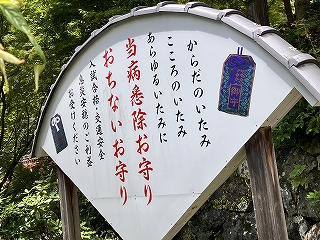 からだのいたみ
こころのいたみ
あらゆるいたみに
当病悉除お守り
おちないお守り
入試合格・交通安全
生活安穏のご利益
お受けください
御守